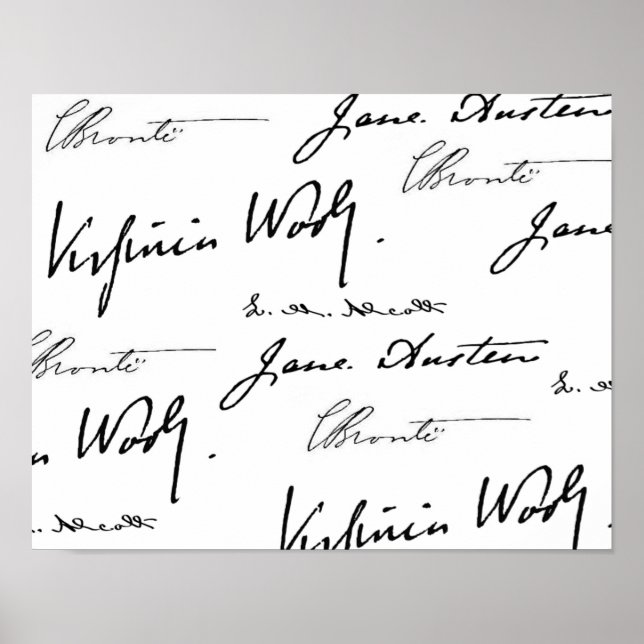 Jane. Austen
CBrontë
CBrontë
Virginia Woolf.
Jane
L. M. Alcott
Brontë
Jane. Austen
L. M.
CBrontë
Woolf.
Virginia Woolf.
M. Alcott